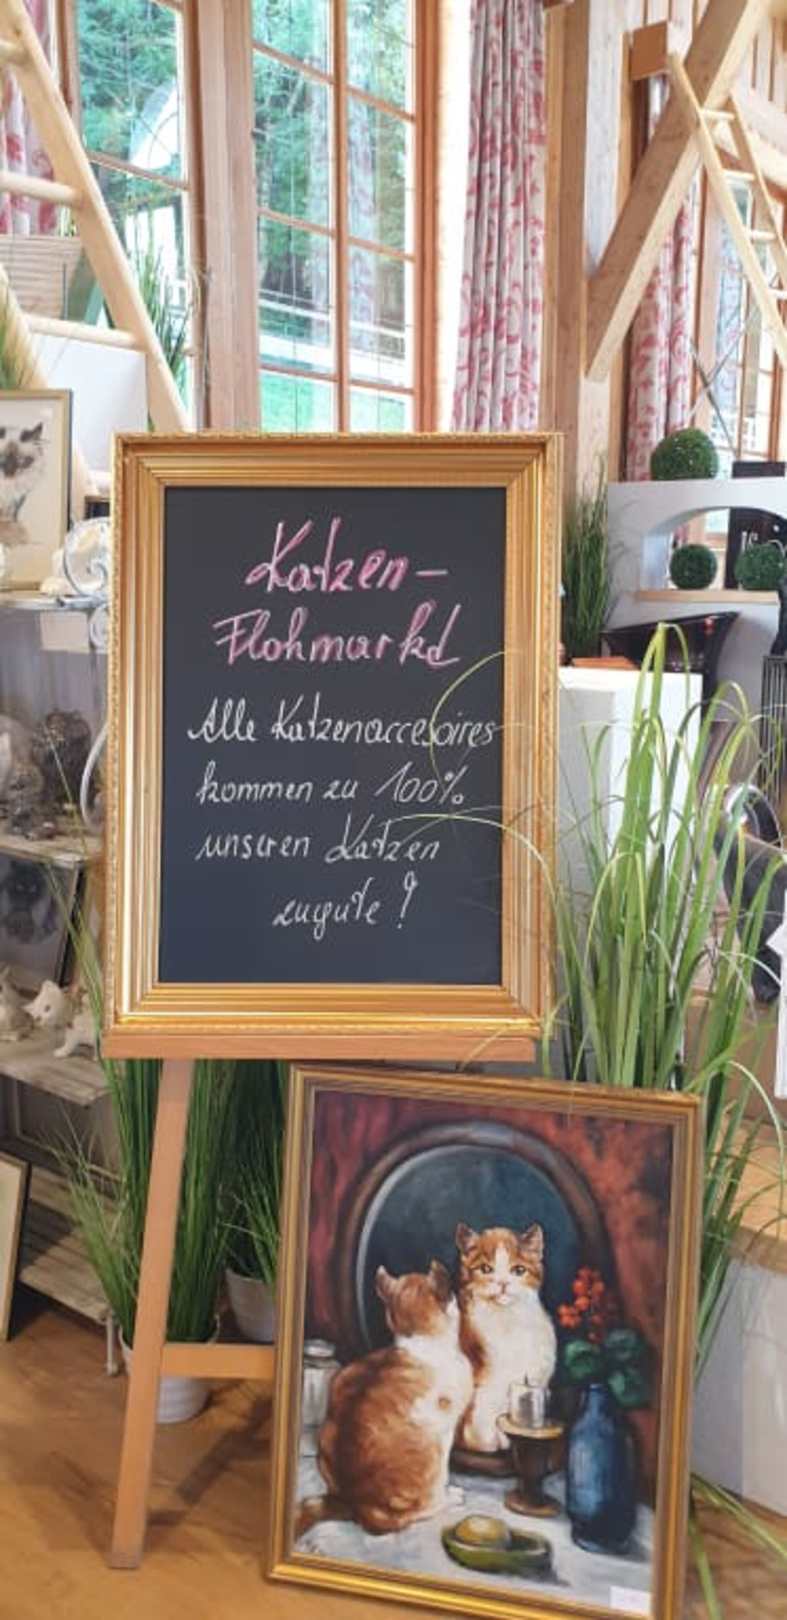 Katzen-
Flohmarkt
Alle Katzenaccesoires
kommen zu 100%
unseren Katzen
zugute!